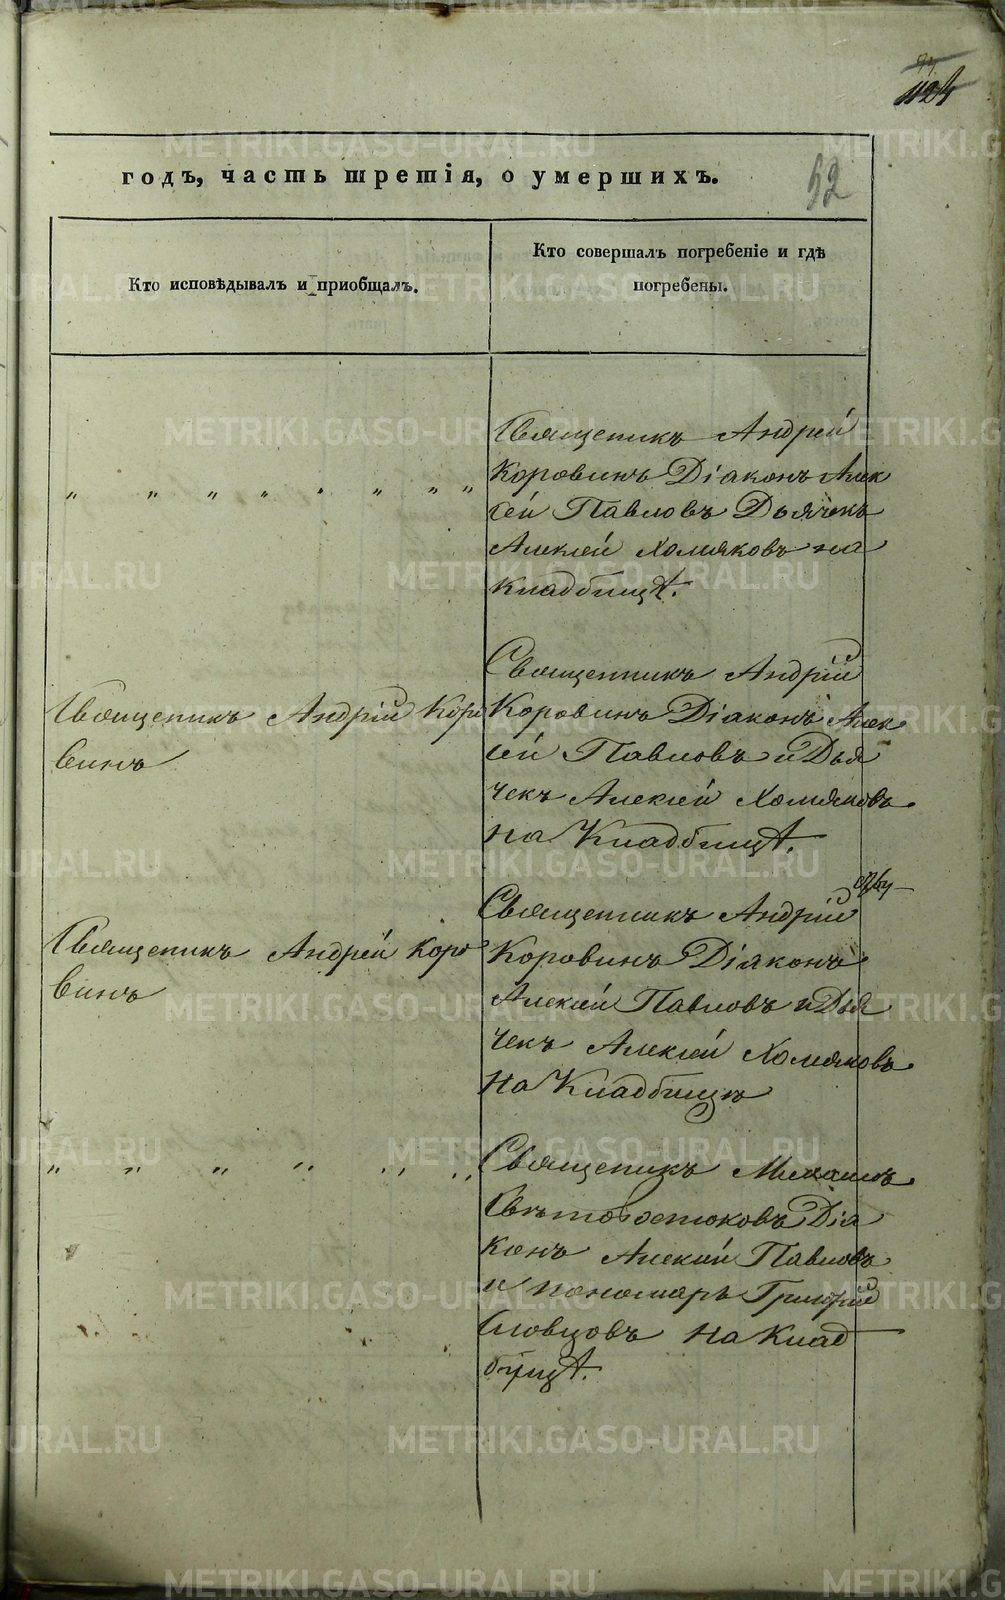 1124
годъ, часть третія, о умершихъ.
52
Кто исповѣдывалъ и пріобщалъ.
Кто совершалъ погребеніе и гдѣ
погребены.
Священикъ Андрей
Коровинъ Діаконъ Алек
сей Павловъ Дьячекъ
Алексей Хомяковъ на
Кладбищѣ.
Священикъ Андрій Коро
винъ
Священникъ Андрій
Коровинъ Діаконъ Алек
сей Павловъ и Дья
чекъ Алексей Хомяковъ
на Кладбищѣ.
Священикъ Андрей Коро
винъ
Священникъ Андрій
Коровинъ Діаконъ
Алексей Павловъ и Дья
чекъ Алексей Хомяковъ
на Кладбищѣ
Священикъ Михаилъ
Діа
конъ Алексий Павловъ
и пономарь Григорий
Словцовъ на Клад
бищѣ.
METRIKI.GASO-URAL.RU